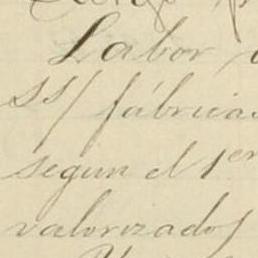 Labor
SS/ fábricas
segun el 1er
valorizados